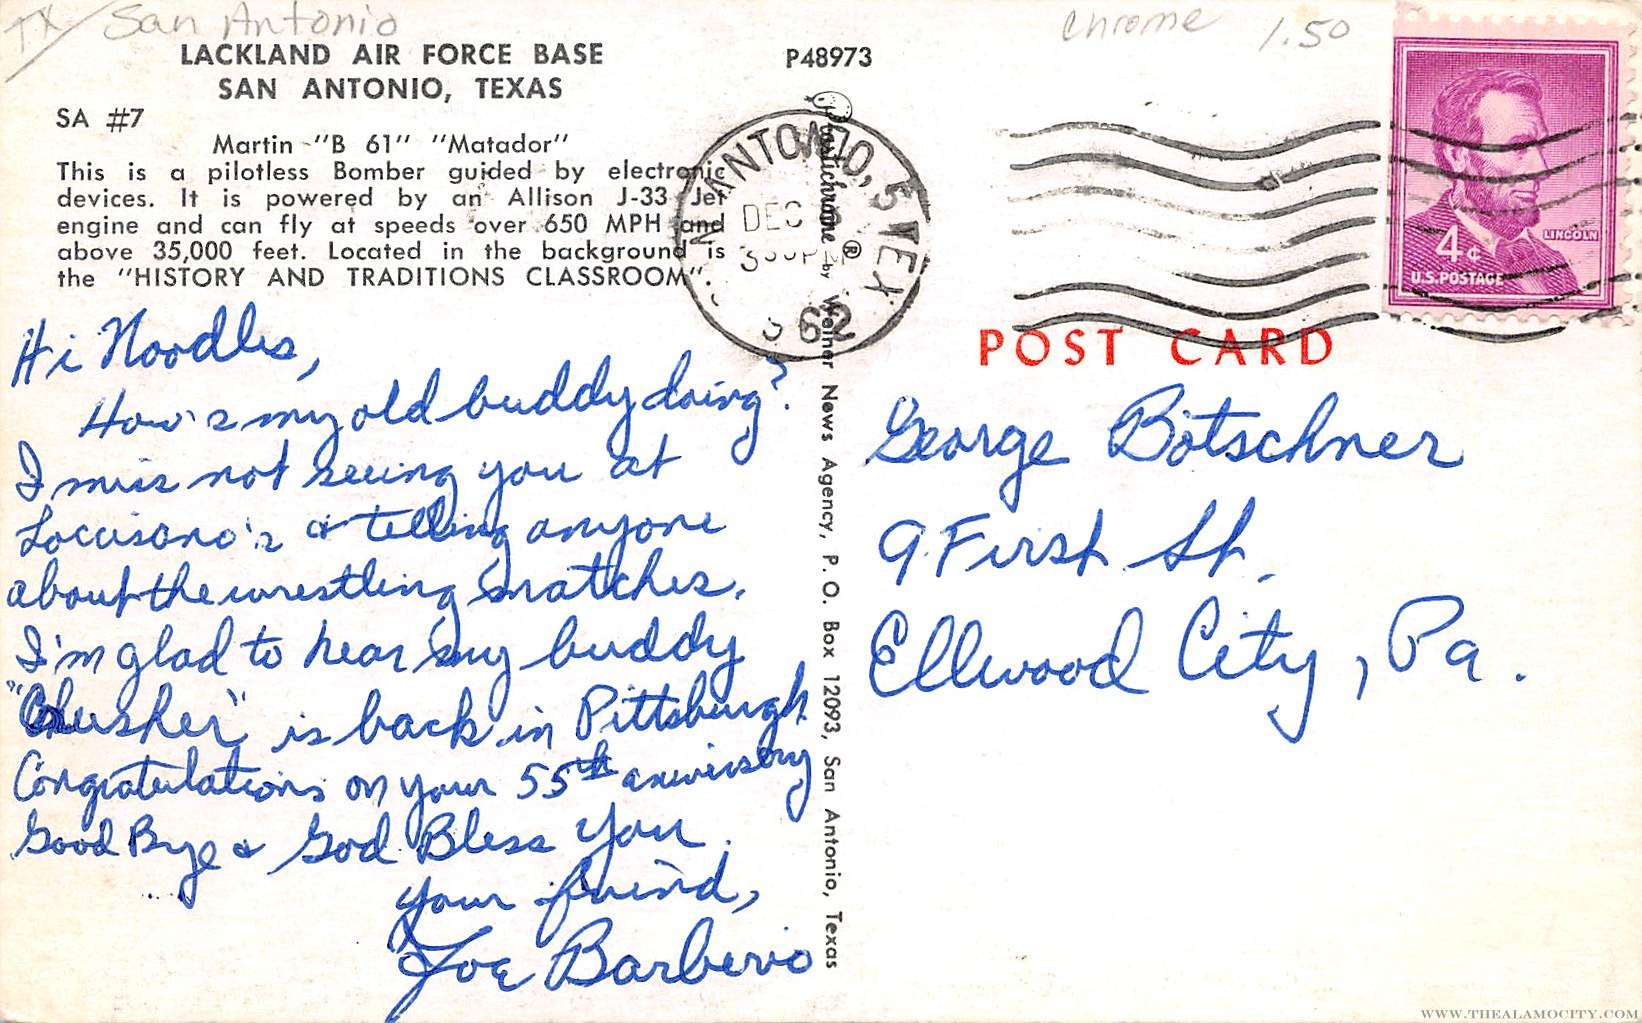 TX/ San Antonio
chrome 1.50
LACKLAND AIR FORCE BASE
SAN ANTONIO, TEXAS
P48973
SA #7
Martin "B 61" "Matador"
This is a pilotless Bomber guided by electronic
devices. It is powered by an Allison J-33 Jet
engine and can fly at speeds over 650 MPH and
above 35,000 feet. Located in the background is
the "HISTORY AND TRADITIONS CLASSROOM".
Hi Noodles,
How's my old buddy doing?
I miss not seeing you at
Loccisano's & telling anyone
about the wrestling matches.
I'm glad to hear my buddy
"Crusher" is back in Pittsburgh
Congratulations on your 55th anniversry
Good Bye & God Bless You.
Your friend,
Joe Barberio
Plastichrome ® by Weiner News Agency, P. O. Box 12093, San Antonio, Texas
SAN ANTONIO, TEX
DEC
3 PM
62
4¢
LINCOLN
U.S. POSTAGE
POST CARD
George Botschner
9 First St.
Ellwood City, Pa.
WWW.THEALAMOCITY.COM